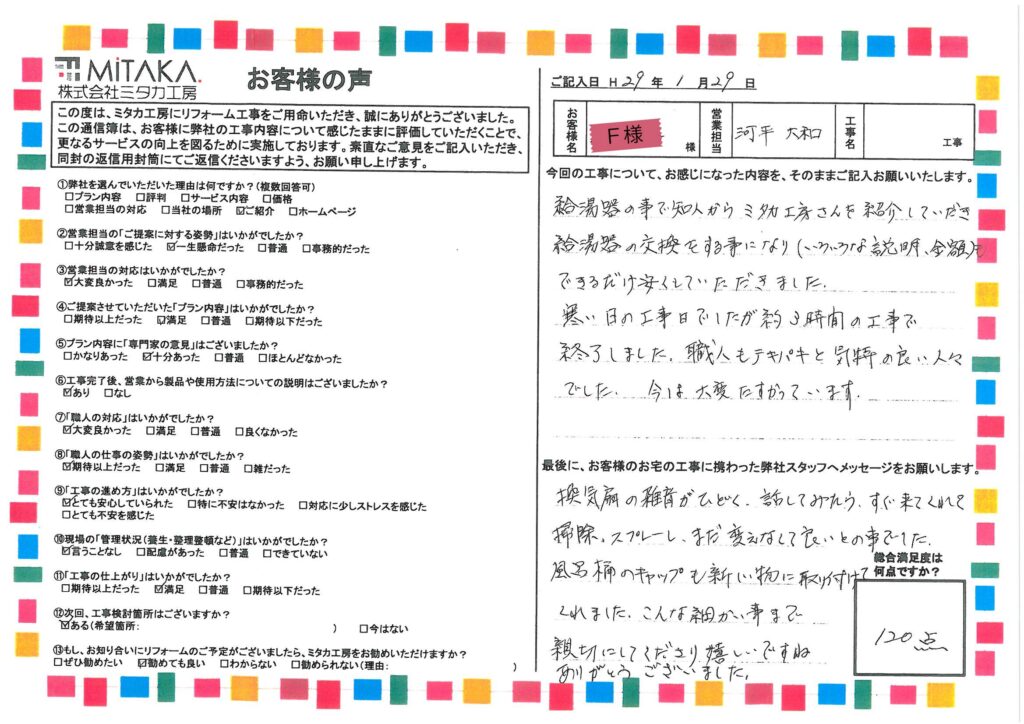 MiTAKA.
株式会社ミタカ工房
お客様の声
この度は、ミタカ工房にリフォーム工事をご用命いただき、誠にありがとうございました。
この通信簿は、お客様に弊社の工事内容について感じたままに評価していただくことで、
更なるサービスの向上を図るために実施しております。素直なご意見をご記入いただき、
同封の返信用封筒にてご返信くださいますよう、お願い申し上げます。
①弊社を選んでいただいた理由は何ですか?(複数回答可)
□プラン内容 □評判 □サービス内容 □価格
□営業担当の対応 □当社の場所 ☑ご紹介 □ホームページ
②営業担当の「ご提案に対する姿勢」はいかがでしたか?
□十分誠意を感じた ☑一生懸命だった □普通 □事務的だった
③営業担当の対応はいかがでしたか?
☑大変良かった □満足 □普通 □事務的だった
④ご提案させていただいた「プラン内容」はいかがでしたか?
□期待以上だった ☑満足 □普通 □期待以下だった
⑤プラン内容に「専門家の意見」はございましたか?
□かなりあった ☑十分あった □普通 □ほとんどなかった
⑥工事完了後、営業から製品や使用方法についての説明はございましたか?
☑あり □なし
⑦「職人の対応」はいかがでしたか?
☑大変良かった □満足 □普通 □良くなかった
⑧「職人の仕事の姿勢」はいかがでしたか?
☑期待以上だった □満足 □普通 □雑だった
⑨「工事の進め方」はいかがでしたか?
☑とても安心していられた □特に不安はなかった □対応に少しストレスを感じた
□とても不安を感じた
⑩現場の「管理状況(養生・整理整頓など)」はいかがでしたか?
☑言うことなし □配慮があった □普通 □できていない
⑪「工事の仕上がり」はいかがでしたか?
□期待以上だった ☑満足 □普通 □期待以下だった
⑫次回、工事検討箇所はございますか?
☑ある(希望箇所: ) □今はない
⑬もし、お知り合いにリフォームのご予定がございましたら、ミタカ工房をお勧めいただけますか?
□ぜひ勧めたい ☑勧めても良い □わからない □勧められない(理由: )
ご記入日 H 29 年 1 月 29 日
お客様名 F様 様 営業担当 河平 大和 工事名 工事
今回の工事について、お感じになった内容を、そのままご記入お願いいたします。
給湯器の事で知人から ミタカ工房さんを紹介していただき
給湯器の交換をする事になり(いろいろな説明、金額)も
できるだけ安くしていただきました.
寒い日の工事日でしたが約3時間の工事で
終了しました. 職人もテキパキと気持の良い人々
でした. 今は大変たすかっています.
最後に、お客様のお宅の工事に携わった弊社スタッフへメッセージをお願いします。
換気扇の雑音がひどく、話してみたら、すぐ来てくれて
掃除、スプレーし、まだ変えなくて良いとの事でした.
風呂桶のキャップも新しい物に取り付けて
くれました. こんな細かい事まで
親切にしてくださり嬉しいですね
ありがとうございました.
総合満足度は
何点ですか?
120点